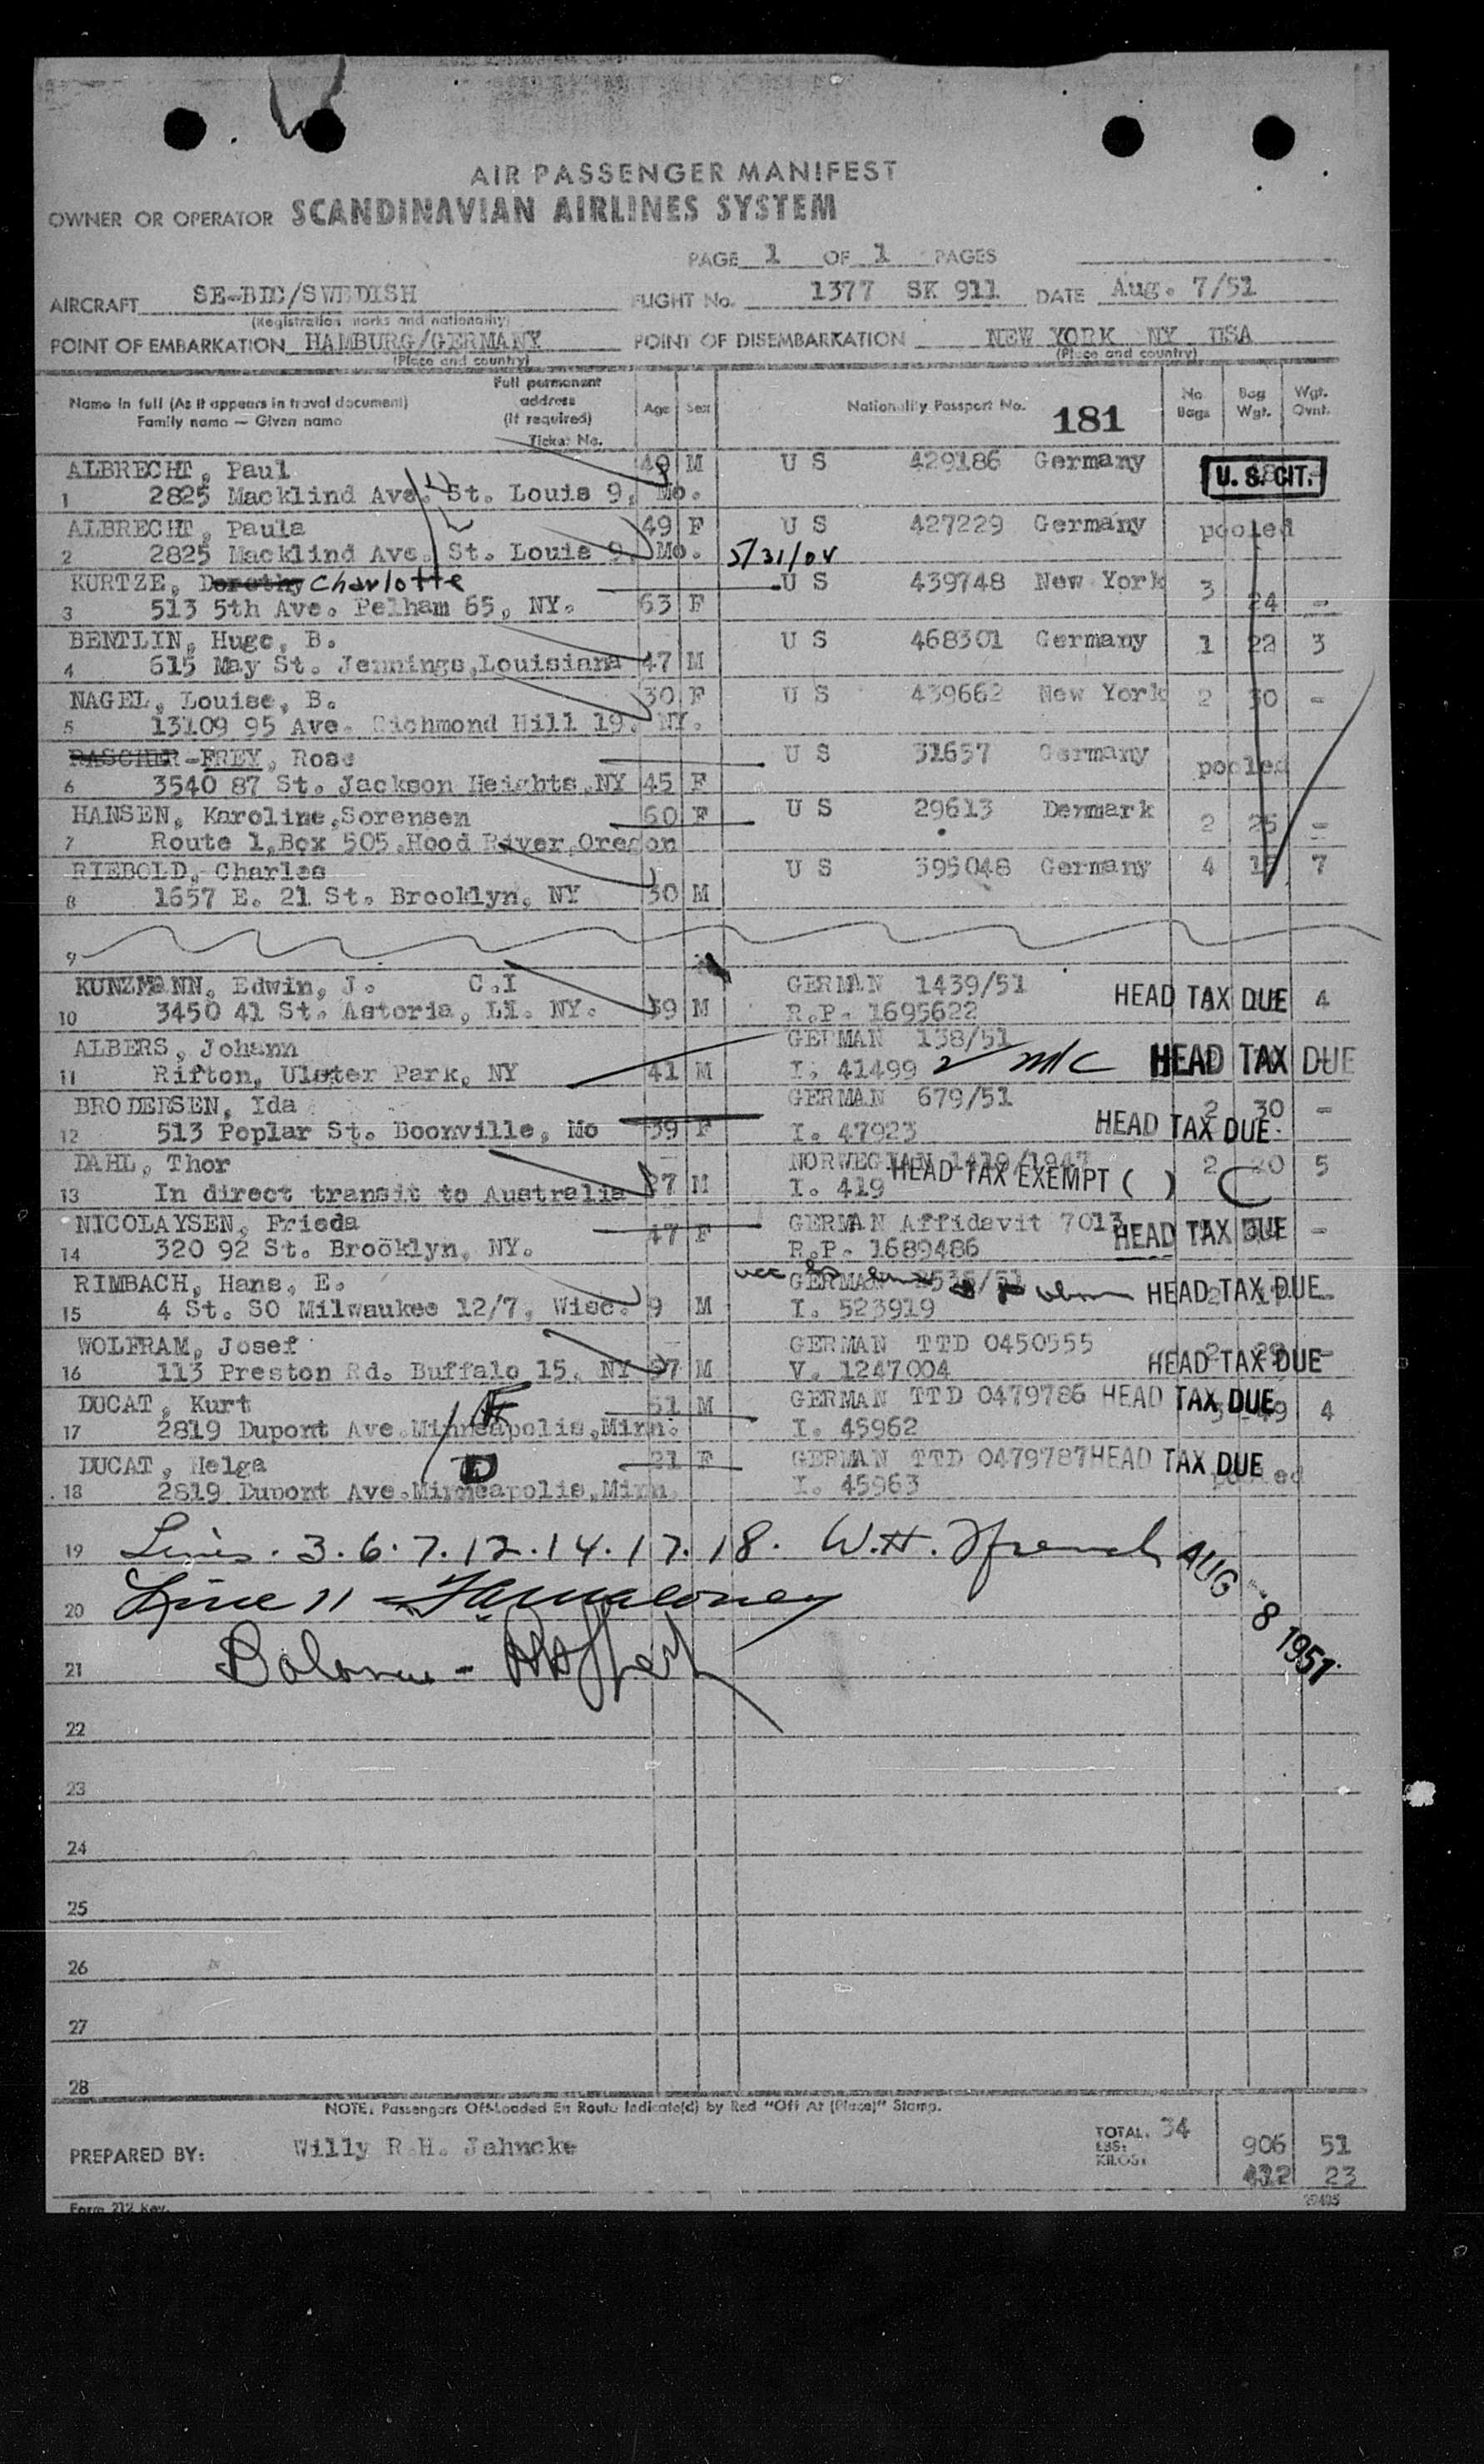 AIR PASSENGER MANIFEST
OWNER OR OPERATOR SCANDINAVIAN AIRLINES SYSTEM
PAGE 1 OF 1 PAGES
AIRCRAFT SE-BDC/SWEDISH FLIGHT No. 1377 SK 911 DATE Aug. 7/51
(Registration marks and nationality)
POINT OF EMBARKATION HAMBURG/GERMANY POINT OF DISEMBARKATION NEW YORK NY USA
(Place and country) (Place and country)
Name in full (As it appears in travel document) Family name — Given name Full permanent address (If required) Ticket No. Age Sex Nationality Passport No. 181 No Bags Bag Wgt. Wgt. Ovnt.
ALBRECHT, Paul 49 M U S 429186 Germany U. S. CIT.
1 2825 Macklind Ave. St. Louis 9, Mo.
ALBRECHT, Paula 49 F U S 427229 Germany pooled
2 2825 Macklind Ave. St. Louis 9, Mo. 5/31/04
KURTZE, Dorothy Charlotte U S 439748 New York 3 24 -
3 513 5th Ave. Pelham 65, NY. 63 F
BENTLIN, Hugo, B. U S 468301 Germany 1 22 3
4 615 May St. Jennings, Louisiana 47 M
NAGEL, Louise, B. 30 F U S 439662 New York 2 30 -
5 13109 95 Ave. Richmond Hill 19. NY.
RASCHER-FREY, Rose U S 31657 Germany pooled
6 3540 87 St. Jackson Heights, NY 45 F
HANSEN, Karoline, Sorensen 60 F U S 29613 Denmark 2 25 -
7 Route 1, Box 505, Hood River, Oregon
RIEBOLD, Charles U S 395048 Germany 4 7
8 1657 E. 21 St. Brooklyn, NY 30 M
9
KUNZMANN, Edwin, J. C.I GERMAN 1439/51 HEAD TAX DUE 4
10 3450 41 St. Astoria, LI. NY. 39 M R.P. 1695622
ALBERS, Johann GERMAN 138/51 HEAD TAX DUE
11 Rifton, Ulster Park, NY 41 M I. 41499
BRODERSEN, Ida GERMAN 679/51 2 30 -
12 513 Poplar St. Boonville, Mo 39 F I. 47923 HEAD TAX DUE
DAHL, Thor NORWEGIAN 1419/1947 2 20 5
13 In direct transit to Australia 27 M I. 419 HEAD TAX EXEMPT ( )
NICOLAYSEN, Frieda 47 F GERMAN Affidavit 7013 HEAD TAX DUE -
14 320 92 St. Brooklyn, NY. R.P. 1689486
RIMBACH, Hans, E. GERMAN HEAD TAX DUE
15 4 St. SO Milwaukee 12/7, Wisc. 9 M I. 523919
WOLFRAM, Josef GERMAN TTD 0450555
16 113 Preston Rd. Buffalo 15, NY 37 M V. 1247004 HEAD TAX DUE
DUCAT, Kurt 51 M GERMAN TTD 0479786 HEAD TAX DUE 4
17 2819 Dupont Ave. Minneapolis, Minn. I. 45962
DUCAT, Helga 21 F GERMAN TTD 0479787 HEAD TAX DUE pooled
18 2819 Dupont Ave. Minneapolis, Minn. I. 45963
19 Lines. 3. 6. 7. 12. 14. 17. 18. W.H. French AUG -8 1951
20 Line 11
21
22
23
24
25
26
27
28
NOTE: Passengers Off-Loaded En Route Indicate(d) by Red "Off At (Place)" Stamp.
PREPARED BY: Willy R.H. Jahncke TOTAL: 34
LBS: 906 51
KILOS: 412 23
Form 212 Rev.